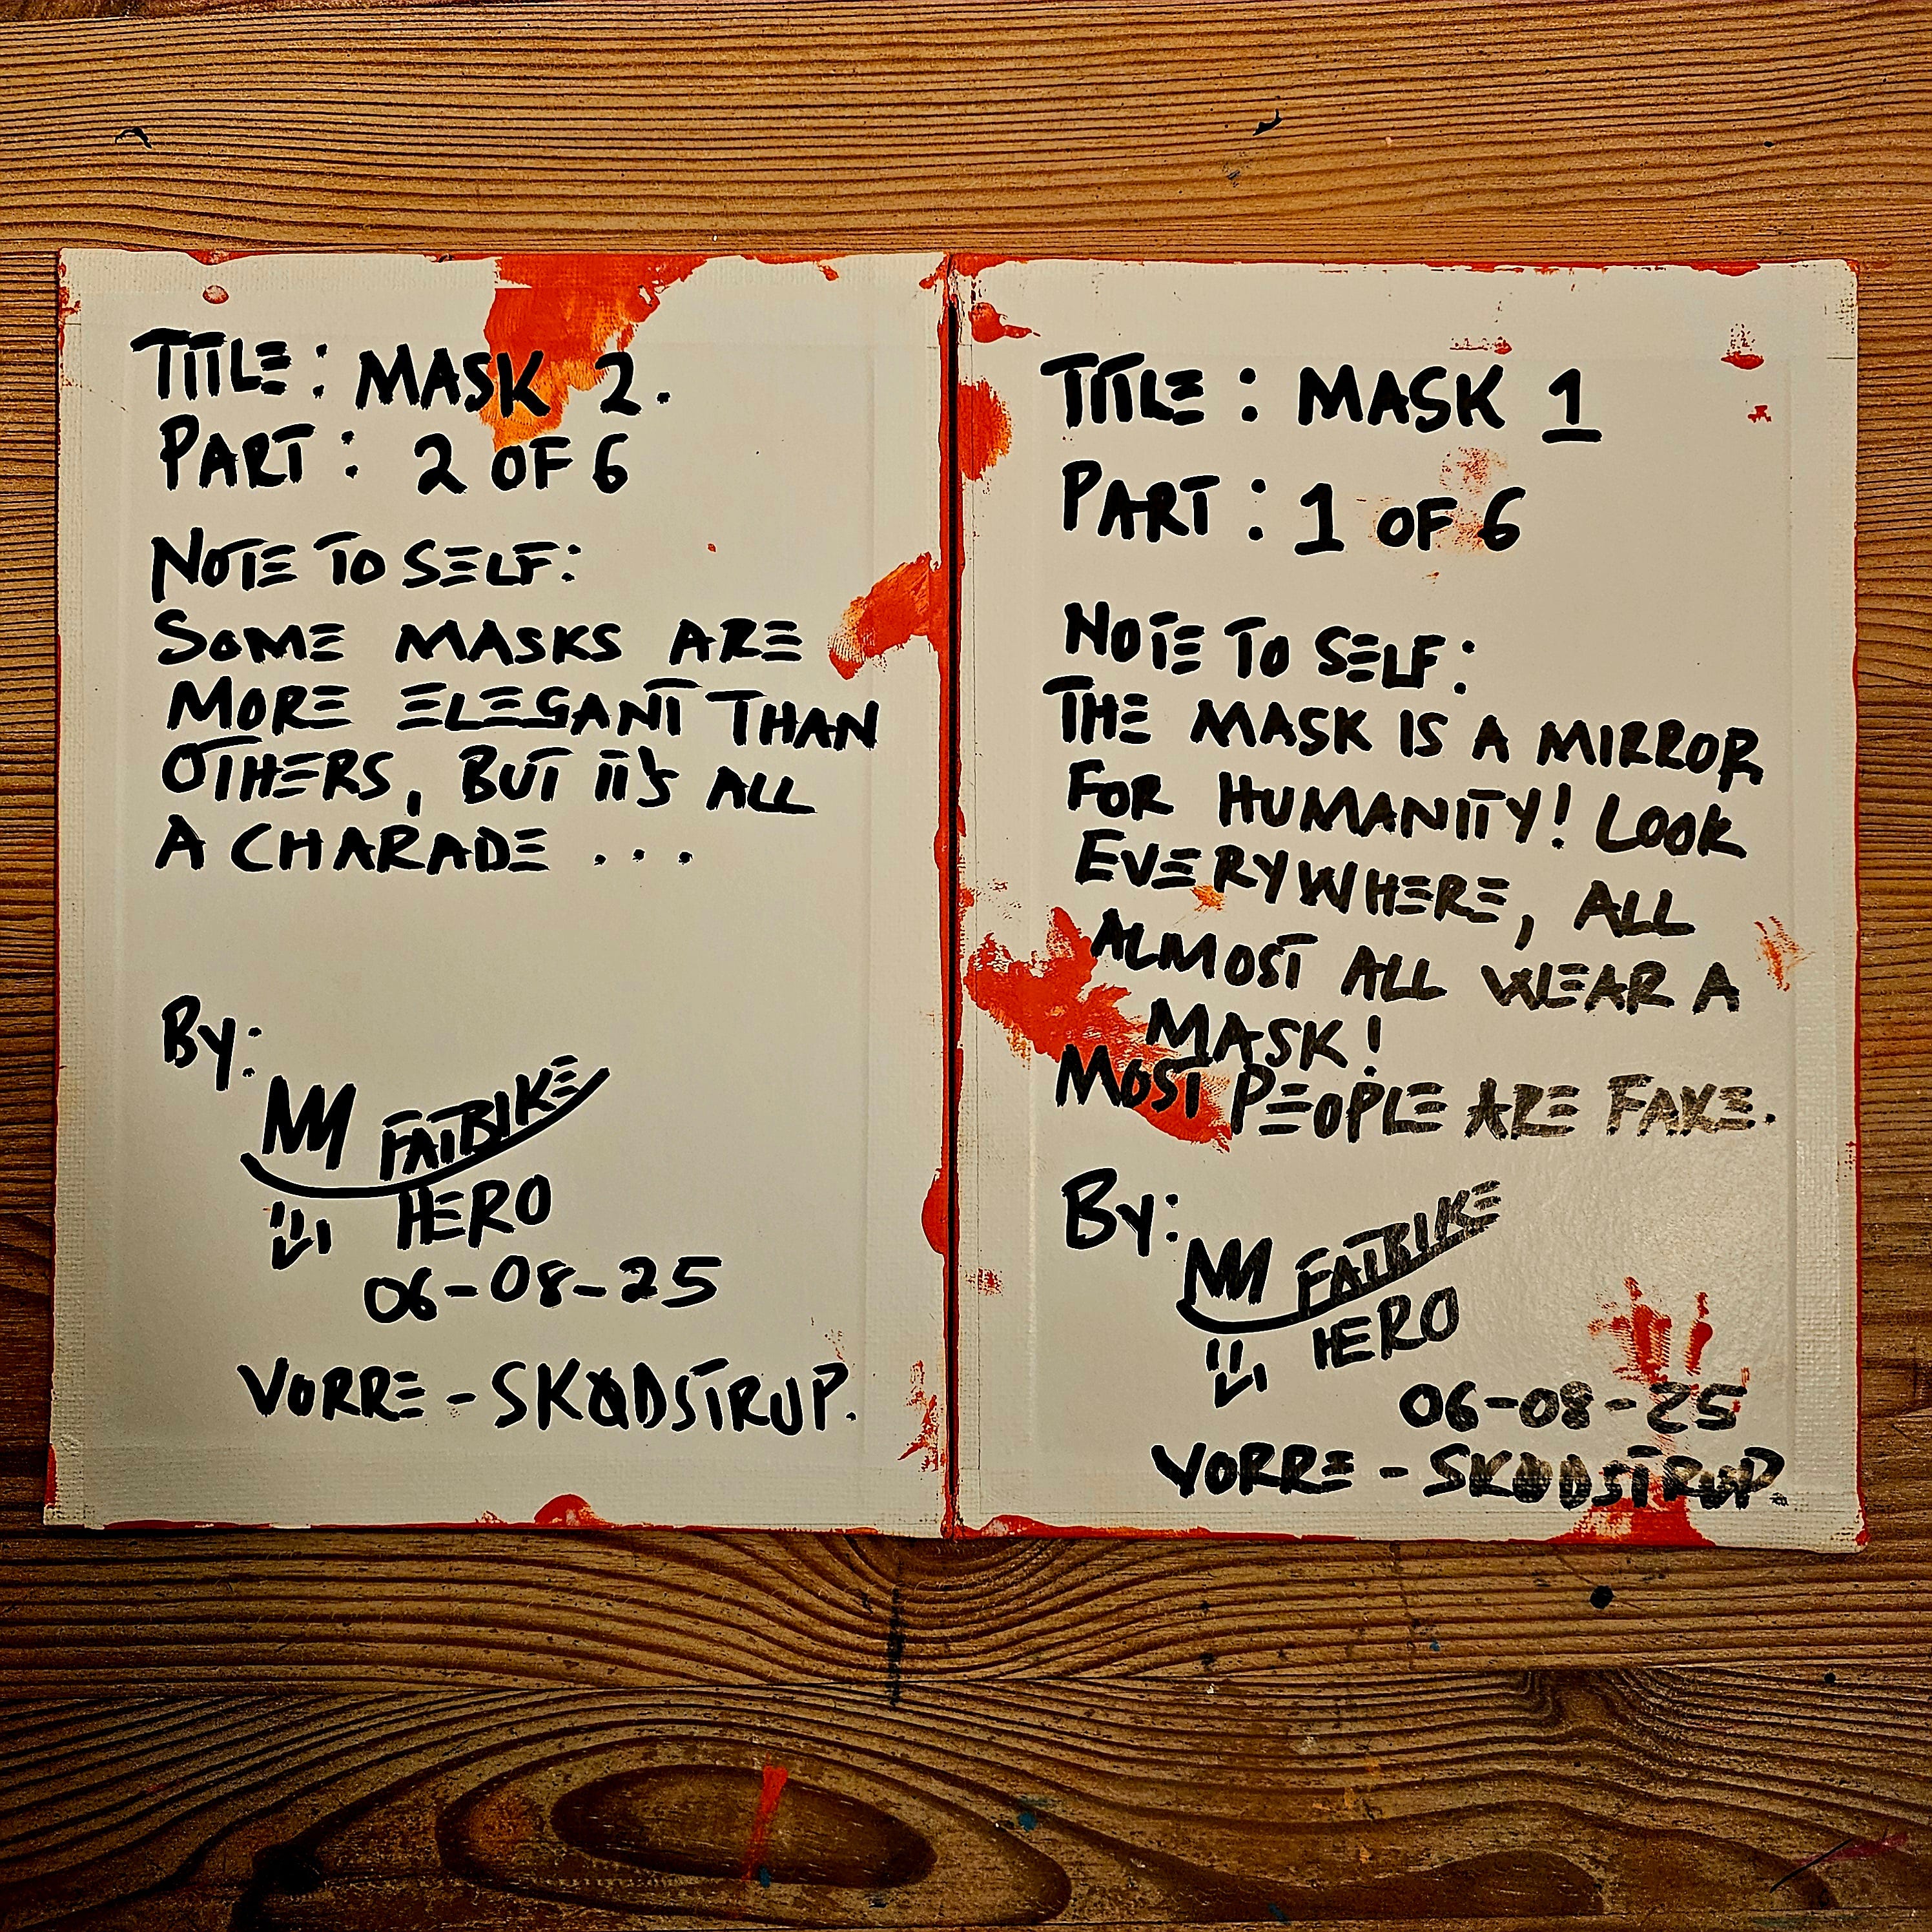 TITLE: MASK 2.
PART: 2 OF 6
NOTE TO SELF:
SOME MASKS ARE
MORE ELEGANT THAN
OTHERS, BUT IT'S ALL
A CHARADE ...
BY:
FATBIKE
HERO
06-08-25
VORRE - SKØDSTRUP.
TITLE: MASK 1
PART: 1 OF 6
NOTE TO SELF:
THE MASK IS A MIRROR
FOR HUMANITY! LOOK
EVERYWHERE, ALL
ALMOST ALL WEAR A
MASK!
MOST PEOPLE ARE FAKE.
BY:
FATBIKE
HERO
06-08-25
VORRE - SKØDSTRUP.